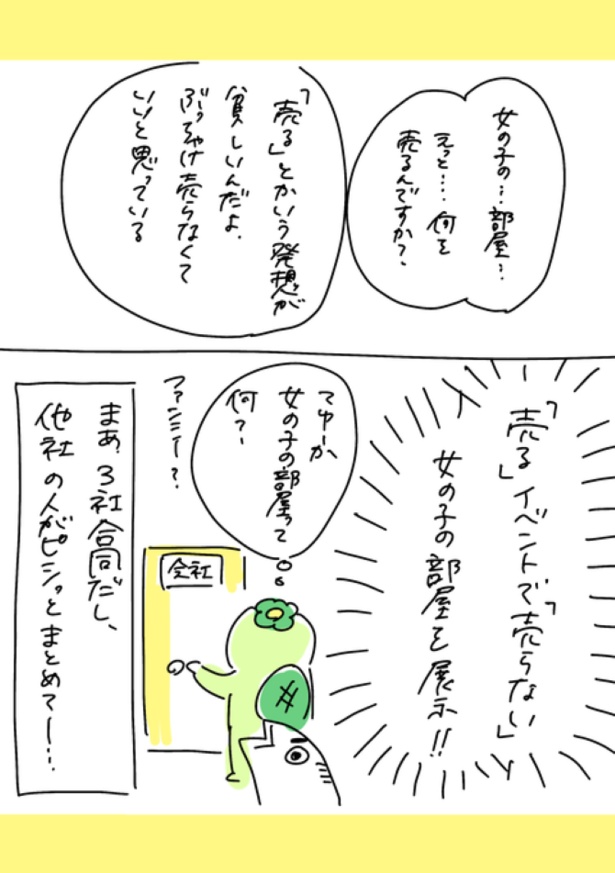 女の子の…部屋…
えっと…何を
売るんですか?
「売る」とかいう発想が
貧しいんだよ.
ぶっちゃけ売らなくて
いいと思っている
「売る」イベントで「売らない」
女の子の部屋を展示!!
てゆーか
女の子の部屋って
何?
ファンシー?
会社
まあ3社合同だし、
他社の人がピシッとまとめてー…